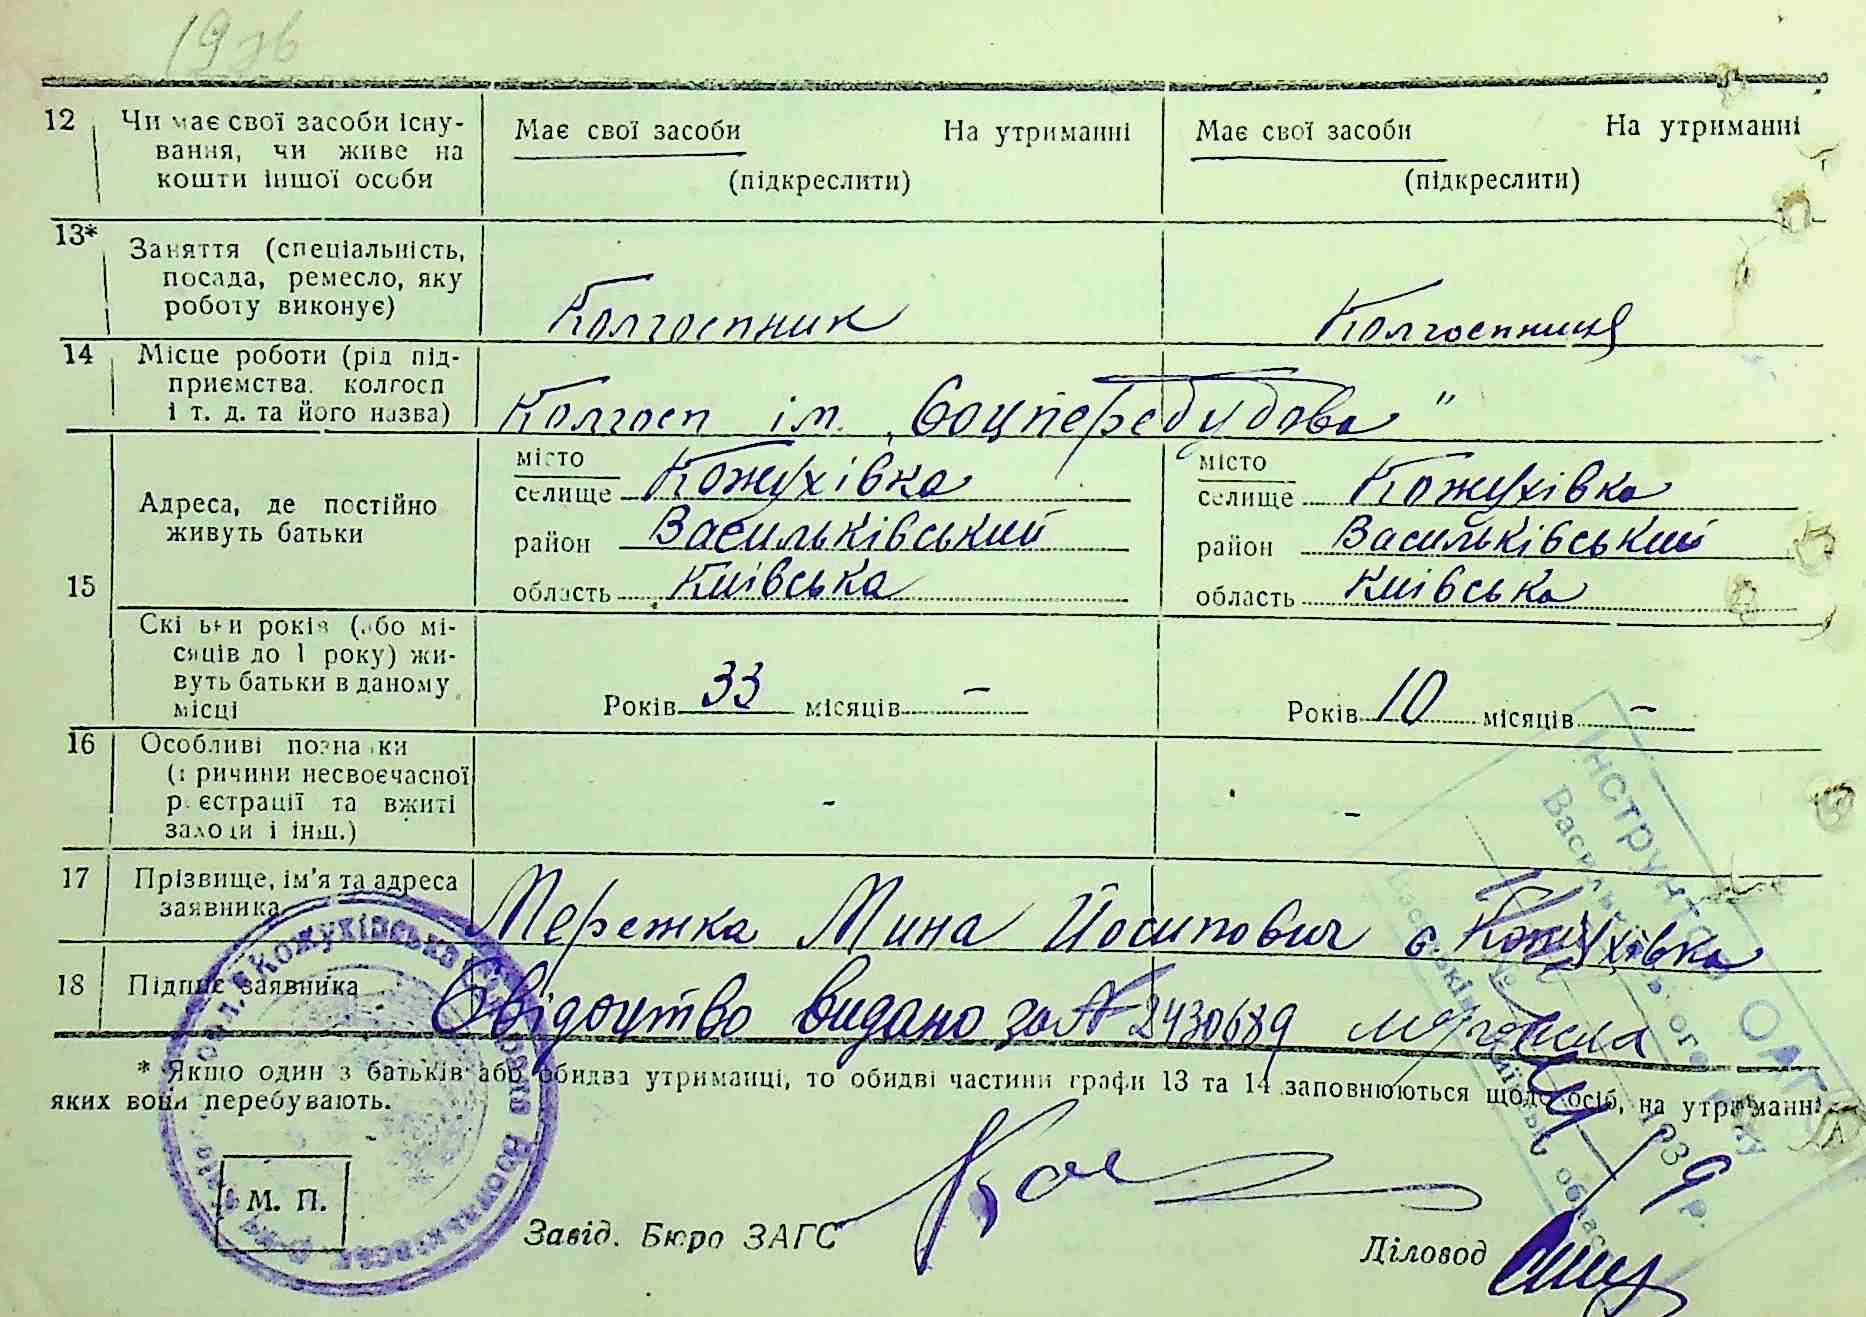 12 Чи має свої засоби існу- Має свої засоби На утриманні Має свої засоби На утриманні
вання, чи живе на
кошти іншої особи (підкреслити) (підкреслити)
13* Заняття (спеціальність,
посада, ремесло, яку
роботу виконує) Колгоспник Колгоспниця
14 Місце роботи (рід під-
приємства, колгосп
і т. д. та його назва) Колгосп ім. „Соцперебудова"
15 Адреса, де постійно
живуть батьки
місто
селище Кожухівка
район Васильківський
область Київська
місто
селище Кожухівка
район Васильківський
область Київська
Скільки років (або мі-
сяців до 1 року) жи-
вуть батьки в даному
місці Років 33 місяців – Років 10 місяців –
16 Особливі познаки
(причини несвоєчасної
реєстрації та вжиті
заходи і інш.) - -
17 Прізвище, ім'я та адреса
заявника Мережка Мина Йосипович с. Кожухівка
18 Підпис заявника Свідоцтво видано за № 2430689
* Якщо один з батьків або обидва утриманці, то обидві частини графи 13 та 14 заповнюються щодо осіб, на утриманні
яких вони перебувають.
М. П.
Завід. Бюро ЗАГС
Діловод
Інструктор ОАГС
Васильківського